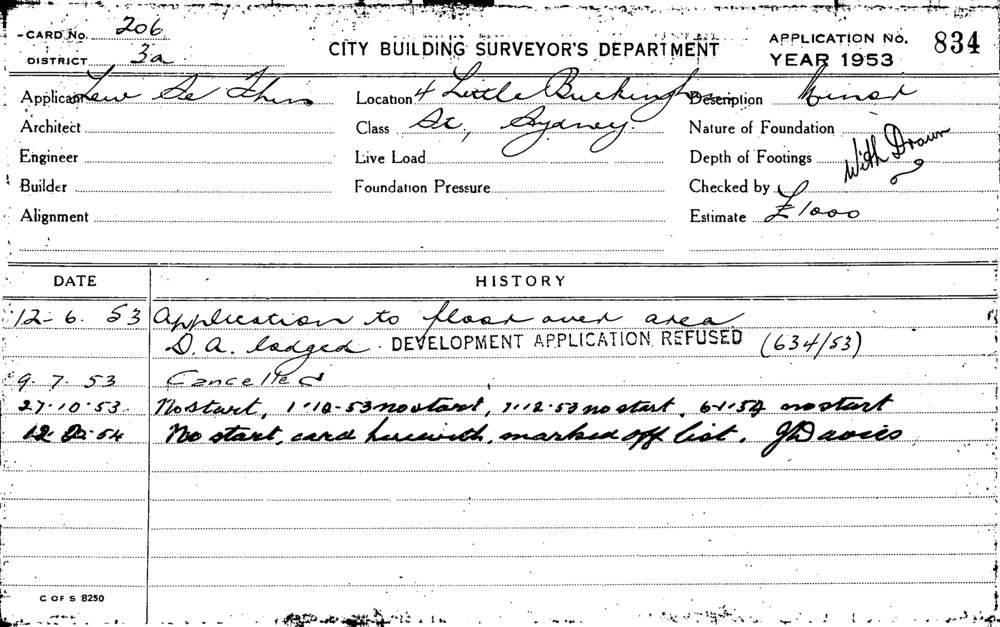 CARD No. 206
DISTRICT 3a
CITY BUILDING SURVEYOR'S DEPARTMENT
APPLICATION No. 834
YEAR 1953
Applicant Lew Se Thin
Location 4 Little Buckingham
Description Minor
Architect
Class St, Sydney.
Nature of Foundation
Engineer
Live Load
Depth of Footings
With Drawn
Builder
Foundation Pressure
Checked by
Alignment
Estimate £1000
DATE HISTORY
12-6. 53 Application to floor over area
D.A. lodged. DEVELOPMENT APPLICATION REFUSED (634/53)
9.7.53 Cancelled
27.10.53. No start, 1-10-53 no start, 7.12.53 no start, 6.1.54 no start
54 No start, card herewith, marked off list. J Davies
C OF S 8250